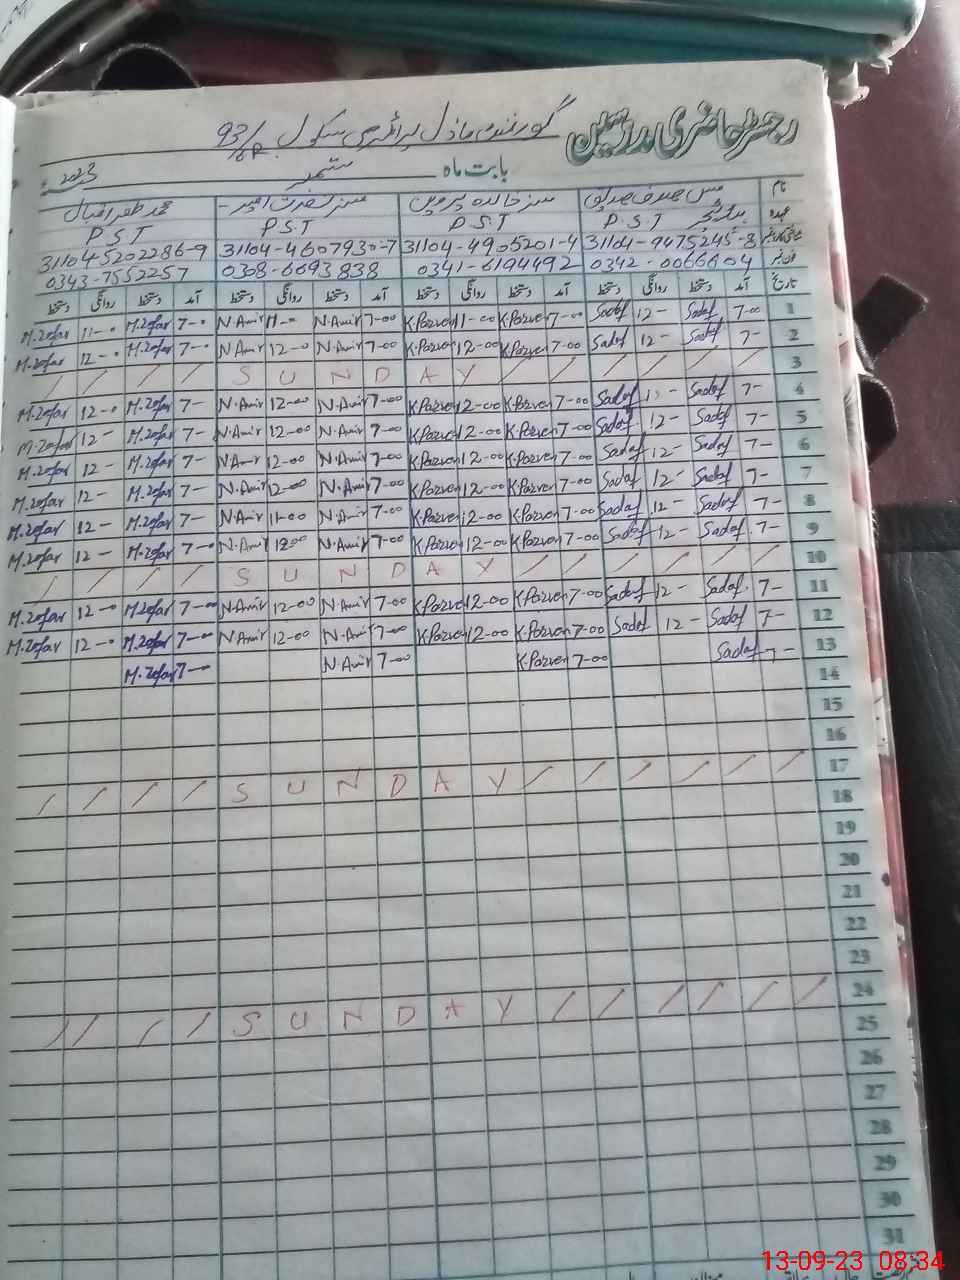 رجسٹر حاضری مدرسین گورنمنٹ ماڈل پرائمری سکول 93/6R
بابت ماہ ستمبر 2023
نام مس صدف صدیق مسز خالدہ پروین مسز نصرت امیر محمد ظفر اقبال
عہدہ P.S.T P.S.T P.S.T P.S.T
31104-9475245-8 31104-4905201-4 31104-4607930-7 31104-5202286-9
0342-0066604 0341-6194492 0308-6693838 0343-7552257
تاریخ آمد دستخط روانگی دستخط آمد دستخط روانگی دستخط آمد دستخط روانگی دستخط آمد دستخط روانگی دستخط
M.Zafar 11-0 M.Zafar 7-0 N.Amir 11-0 N.Amir 7-00 K.Parven 11-00 K.Parven 7-00 Sadaf 12- Sadaf 7-00 1
M.Zafar 12-0 M.Zafar 7-0 N.Amir 12-0 N.Amir 7-00 K.Parven 12-00 K.Parven 7-00 Sadaf 12- Sadaf 7- 2
/ / / / S U N D A Y / / / / / / 3
M.Zafar 12-0 M.Zafar 7- N.Amir 12-00 N.Amir 7-00 K.Parven 12-00 K.Parven 7-00 Sadaf 12- Sadaf 7- 4
M.Zafar 12- M.Zafar 7- N.Amir 12-00 N.Amir 7-00 K.Parven 12-00 K.Parven 7-00 Sadaf 12- Sadaf 7- 5
M.Zafar 12- M.Zafar 7- N.Amir 12-00 N.Amir 7-00 K.Parven 12-00 K.Parven 7-00 Sadaf 12- Sadaf 7- 6
M.Zafar 12- M.Zafar 7- N.Amir 12-00 N.Amir 7-00 K.Parven 12-00 K.Parven 7-00 Sadaf 12- Sadaf 7- 7
M.Zafar 12- M.Zafar 7- N.Amir 11-00 N.Amir 7-00 K.Parven 12-00 K.Parven 7-00 Sadaf 12- Sadaf 7- 8
M.Zafar 12- M.Zafar 7-0 N.Amir 1200 N.Amir 7-00 K.Parven 12-00 K.Parven 7-00 Sadaf 12- Sadaf 7- 9
/ / / / S U N D A Y / / / / / / 10
M.Zafar 12-0 M.Zafar 7-00 N.Amir 12-00 N.Amir 7-00 K.Parven 12-00 K.Parven 7-00 Sadaf 12- Sadaf 7- 11
M.Zafar 12-0 M.Zafar 7-00 N.Amir 12-00 N.Amir 7-00 K.Parven 12-00 K.Parven 7-00 Sadaf 12- Sadaf 7- 12
M.Zafar 7-00 N.Amir 7-00 K.Parven 7-00 Sadaf 7- 13
14
15
16
/ / / / S U N D A Y / / / / / / 17
18
19
20
21
22
23
/ / / / S U N D A Y / / / / / / 24
25
26
27
28
29
30
31
13-09-23 08:34